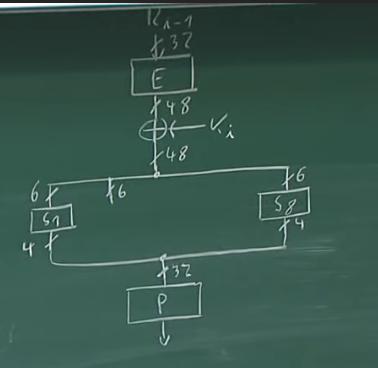 Ri-1
32
E
48
Ki
48
6 6 6
S1 S8
4 4
32
P